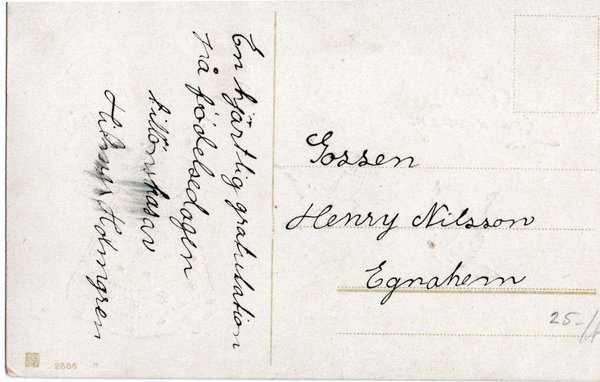 En hjärtlig gratulation
på födelsedagen
tillönskas av
Hilma Holmgren
Gossen
Henry Nilsson
Egnahem
25-/
2686